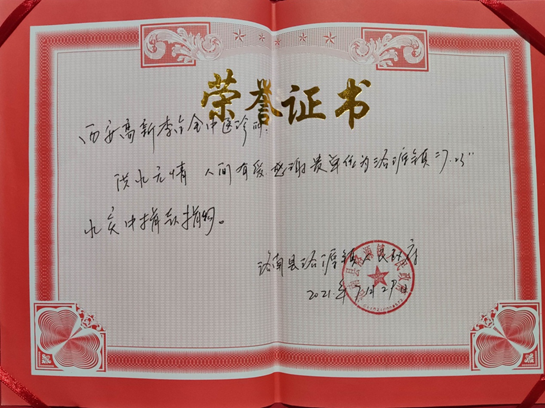 荣誉证书
西安高新李合全中医诊所:
洪水无情 人间有爱 感谢贵单位为洛源镇"7.23"
水灾中捐款捐物。
洛南县洛源镇人民政府
2021年7月29日